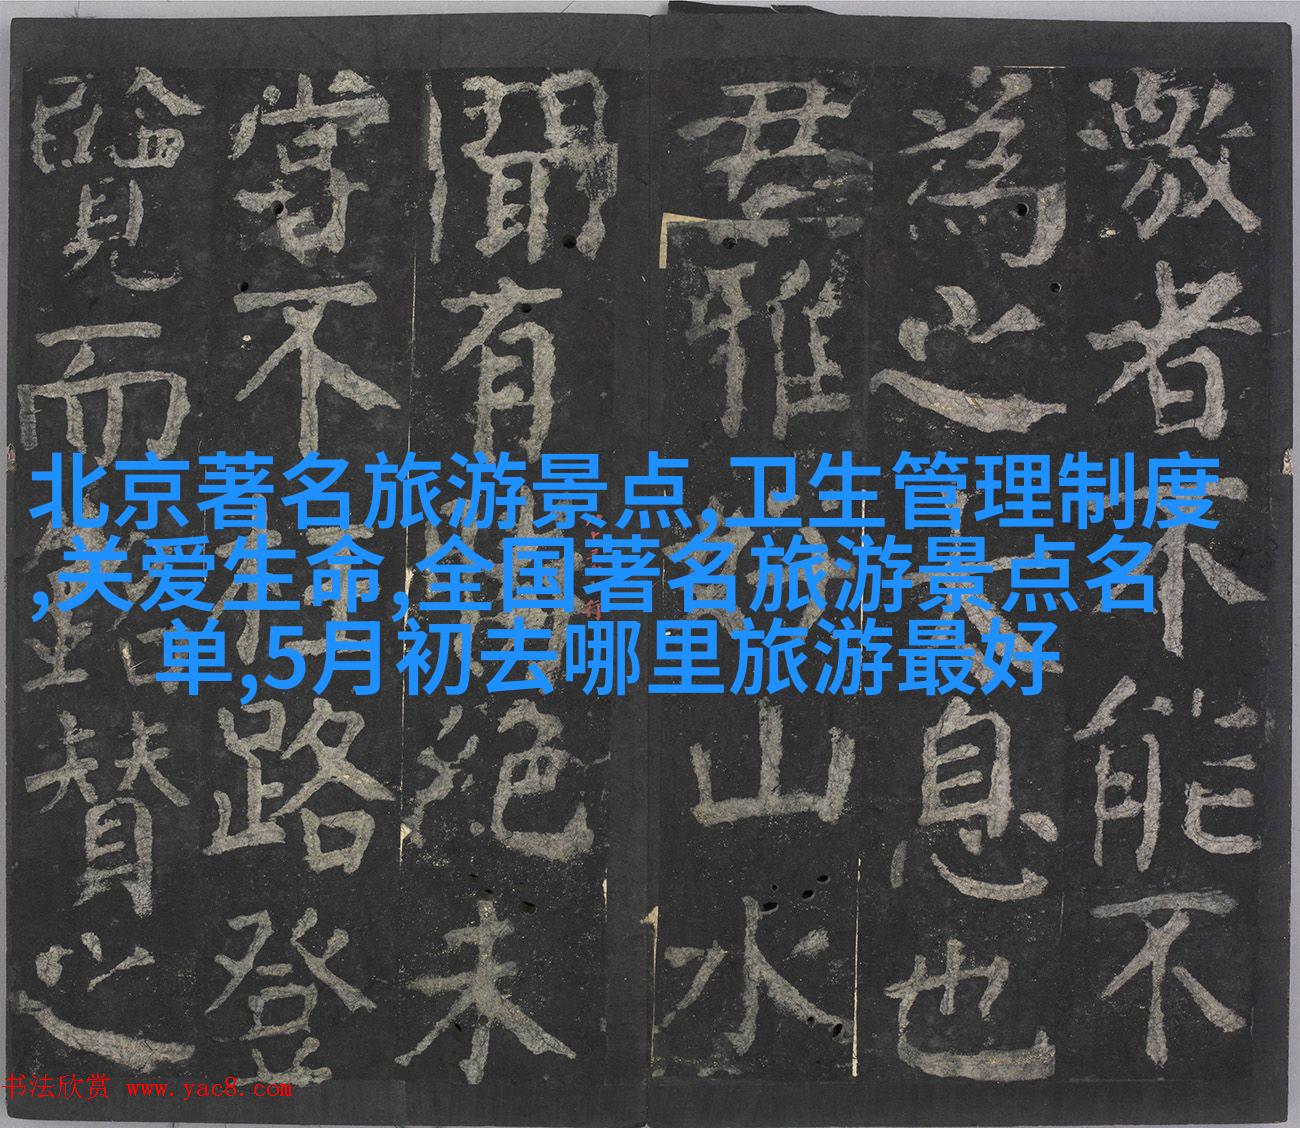 激者不能不
為之息也
君雅山水
聞有絕未
嘗不路登
覽而贊之
北京著名旅游景点,卫生管理制度
,关爱生命,全国著名旅游景点名
单,5月初去哪里旅游最好
书法欣赏 www.yac8.com